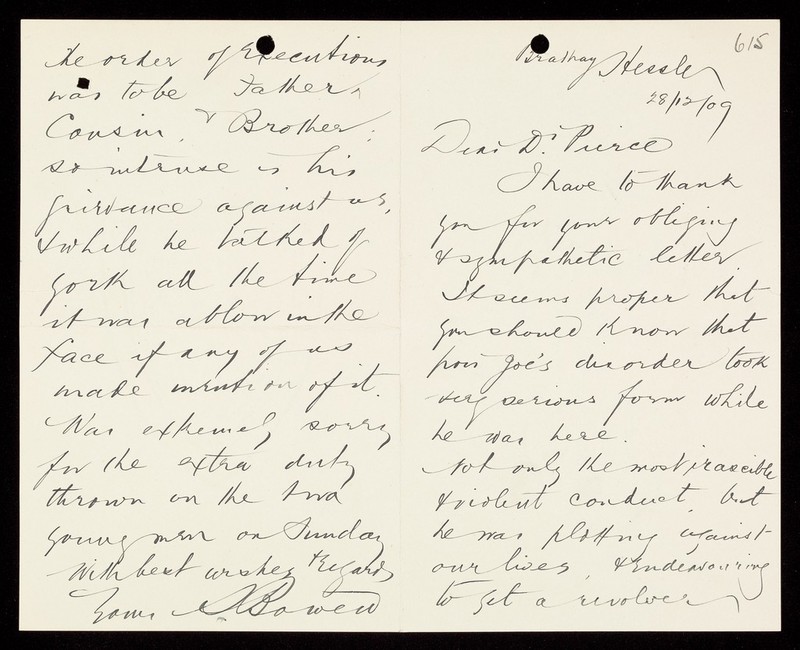 615
Brathay Hessle
28/12/09
Dear Dr. Pierce
I have to thank
you for your obliging
& sympathetic letter
It seems proper that
you should know that
poor Joe's disorder took
very serious form while
he was here.
Not only the most irascible
& violent conduct, but
he was plotting against
our lives, & endeavouring
to get a revolver
The order of Executions
was to be Father,
Cousin, & Brother:
so intense is his
grievance against us,
& while he talked of
York all the time
it was a blow in the
face if any of us
made mention of it.
Was extremely sorry
for the extra duty
thrown on the two
young men on Sunday
With best wishes & regards
Yours Bowen